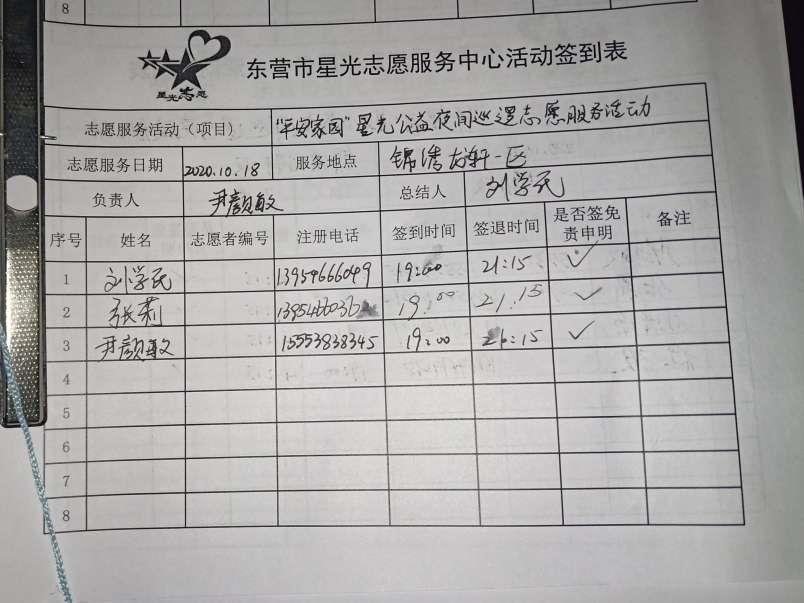 8
星光志愿
东营市星光志愿服务中心活动签到表
志愿服务活动（项目） "平安家园"星光公益夜间巡逻志愿服务活动
志愿服务日期 2020.10.18 服务地点 锦绣龙轩一区
负责人 尹颜敏 总结人 刘学民
序号 姓名 志愿者编号 注册电话 签到时间 签退时间 是否签免责申明 备注
1 刘学民 13954666049 19:00 21:15 ✓
2 张莉 19.00 21.15 ✓
3 尹颜敏 15553838345 19:00 ✓
4
5
6
7
8